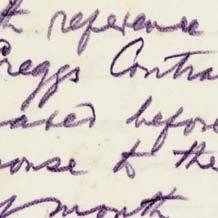 th reference
Greggs Contra
ased before
onse to the
month